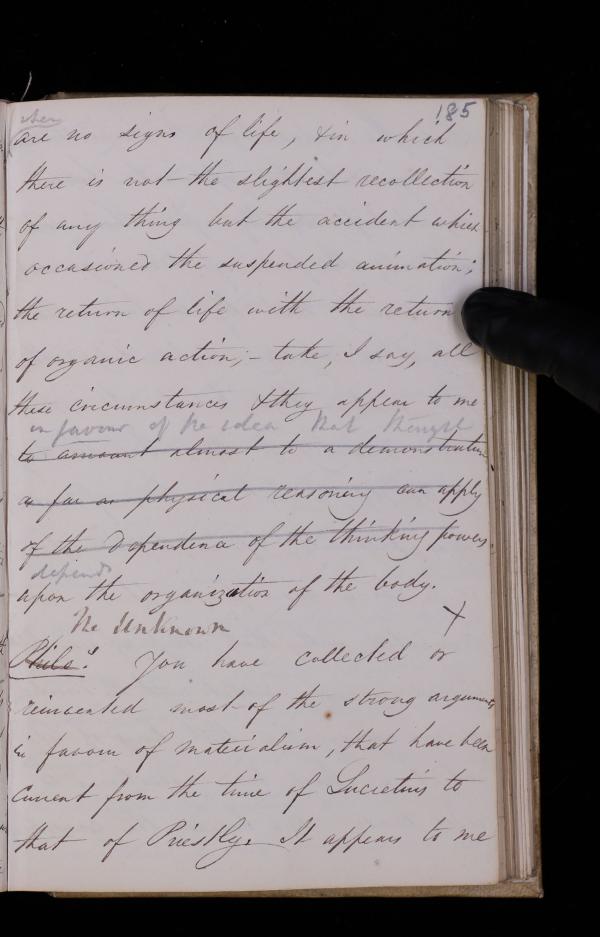 185
when
are no signs of life, & in which
there is not the slightest recollection
of any thing but the accident which
occasioned the suspended animation;
the return of life with the return
of organic action; – take, I say, all
these circumstances & they appear to me
in favour of the idea that thought
to amount almost to a demonstration
as far as physical reasoning can apply
of the dependence of the thinking powers
depends
upon the organization of the body.
The Unknown X
Phils. You have collected or
reinvented most of the strong arguments
in favour of materialism, that have been
current from the time of Lucretius to
that of Priestly. It appears to me